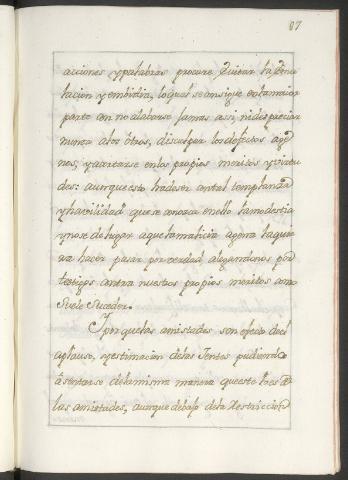 87
acciones y palabras procure Quitar la Emu
lacion y embidia, lo qual se consigue en la maior
parte con no alabarse Jamas assi, ni despreciar
nunca a los otros, disculpar los defectos age
nos, y acortarse en los propios meritos y virtu
des: aunque esto ha de ser con tal templanza
y havilidad que se conozca en ello la modestia
y no se de lugar a que la malicia agena la quie
ra hacer pasar por verdad alegandonos por
testigos contra nuestros propios meritos como
suele suceder.
Y por que las amistades son efecto del
aplauso, y estimacion de las Jentes pudiendo
asentarse de la misma manera que este
las amistades, aunque debajo de la Restriccion